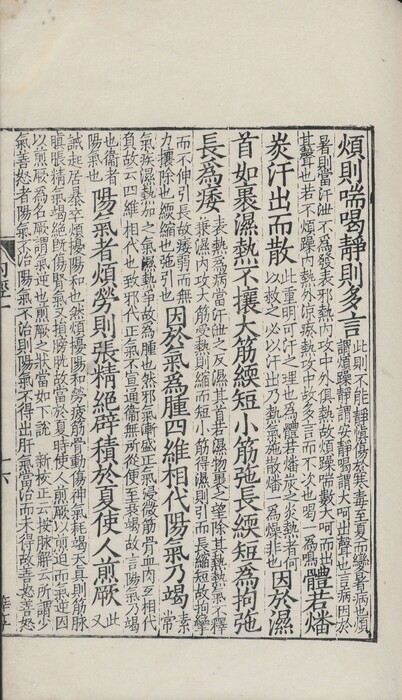 煩則喘喝靜則多言此則不能靜愼傷於寒毒至夏而變暑病也煩
謂煩躁靜謂安靜喝謂大呵出聲也言病因於
暑則當汗泄不爲發表邪熱內攻中外俱熱故煩躁喘數大呵而出
其聲也若不煩躁內熱外涼瘀熱攻中故多言而不次也喝一爲鳴
體若燔
炭汗出而散此重明可汗之理也爲體若燔炭之炎熱者何
以救之必以汗出乃熱氣施散燔一爲燥非也
因於濕
首如裹濕熱不攘大筋緛短小筋弛長緛短爲拘弛
長爲痿表熱爲病當汗泄之反濕其首若濕物裹之望除其熱熱氣不釋
兼濕內攻大筋受熱則縮而短小筋得濕則引而長縮短故拘攣
而不伸引長故痿弱而無
力攘除也緛縮也弛引也
因於氣爲腫四維相代陽氣乃竭素
常
氣疾濕熱加之氣濕熱爭故爲腫也然邪氣漸盛正氣浸微筋骨血肉互相代
負故云四維相代也致邪代正氣不宣通衛無所從便至衰竭故言陽氣乃竭
也衞者
陽氣也
陽氣者煩勞則張精絕辟積於夏使人煎厥又
此
誡起居暴卒煩擾陽和也然煩擾陽和勞疲筋骨動傷神氣耗竭天真則筋脉
䐜脹精氣竭絕旣傷腎氣又損膀胱故當於夏時使人煎厥以煎迫而氣逆因
以煎厥爲名厥謂氣逆也煎厥之狀當如下說 新校正云按脉解云所謂少
氣善怒者陽氣不治陽氣不治則陽氣不得出肝氣當治而未得故善怒善怒
內經一
十六